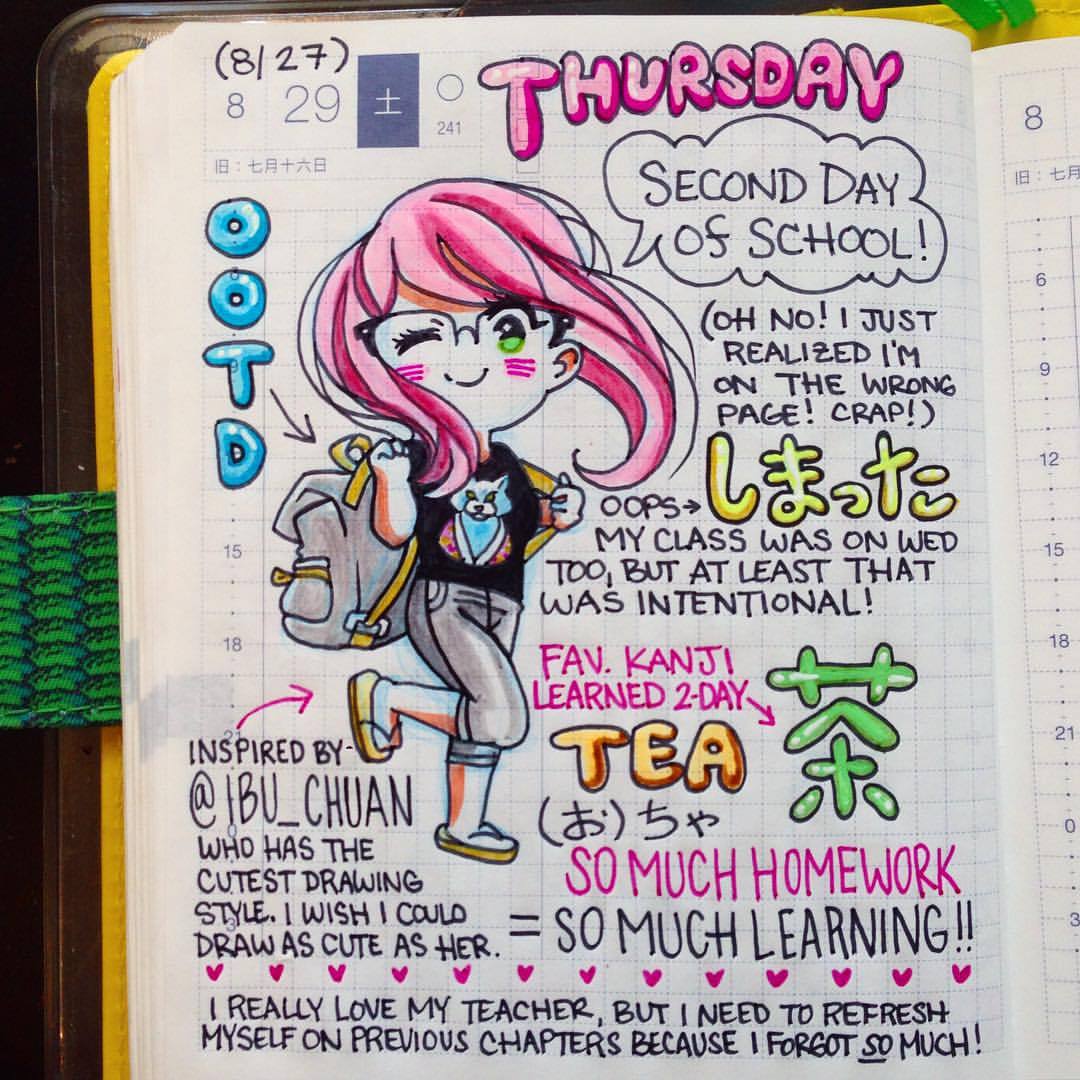 (8/27)
8 29 土 ○
241
旧：七月十六日
THURSDAY
SECOND DAY
OF SCHOOL!
OOTD
(OH NO! I JUST
REALIZED I'M
ON THE WRONG
PAGE! CRAP!)
OOPS→ しまった
MY CLASS WAS ON WED
TOO, BUT AT LEAST THAT
WAS INTENTIONAL!
FAV. KANJI
LEARNED 2-DAY
TEA 茶
(お)ちゃ
INSPIRED BY-
@iBU_CHUAN
WHO HAS THE
CUTEST DRAWING
STYLE. I WISH I COULD
DRAW AS CUTE AS HER.
SO MUCH HOMEWORK
= SO MUCH LEARNING!!
I REALLY LOVE MY TEACHER, BUT I NEED TO REFRESH
MYSELF ON PREVIOUS CHAPTERS BECAUSE I FORGOT SO MUCH!
9
15
18
21
3
8
旧：七月
6
9
12
15
18
21
0
3